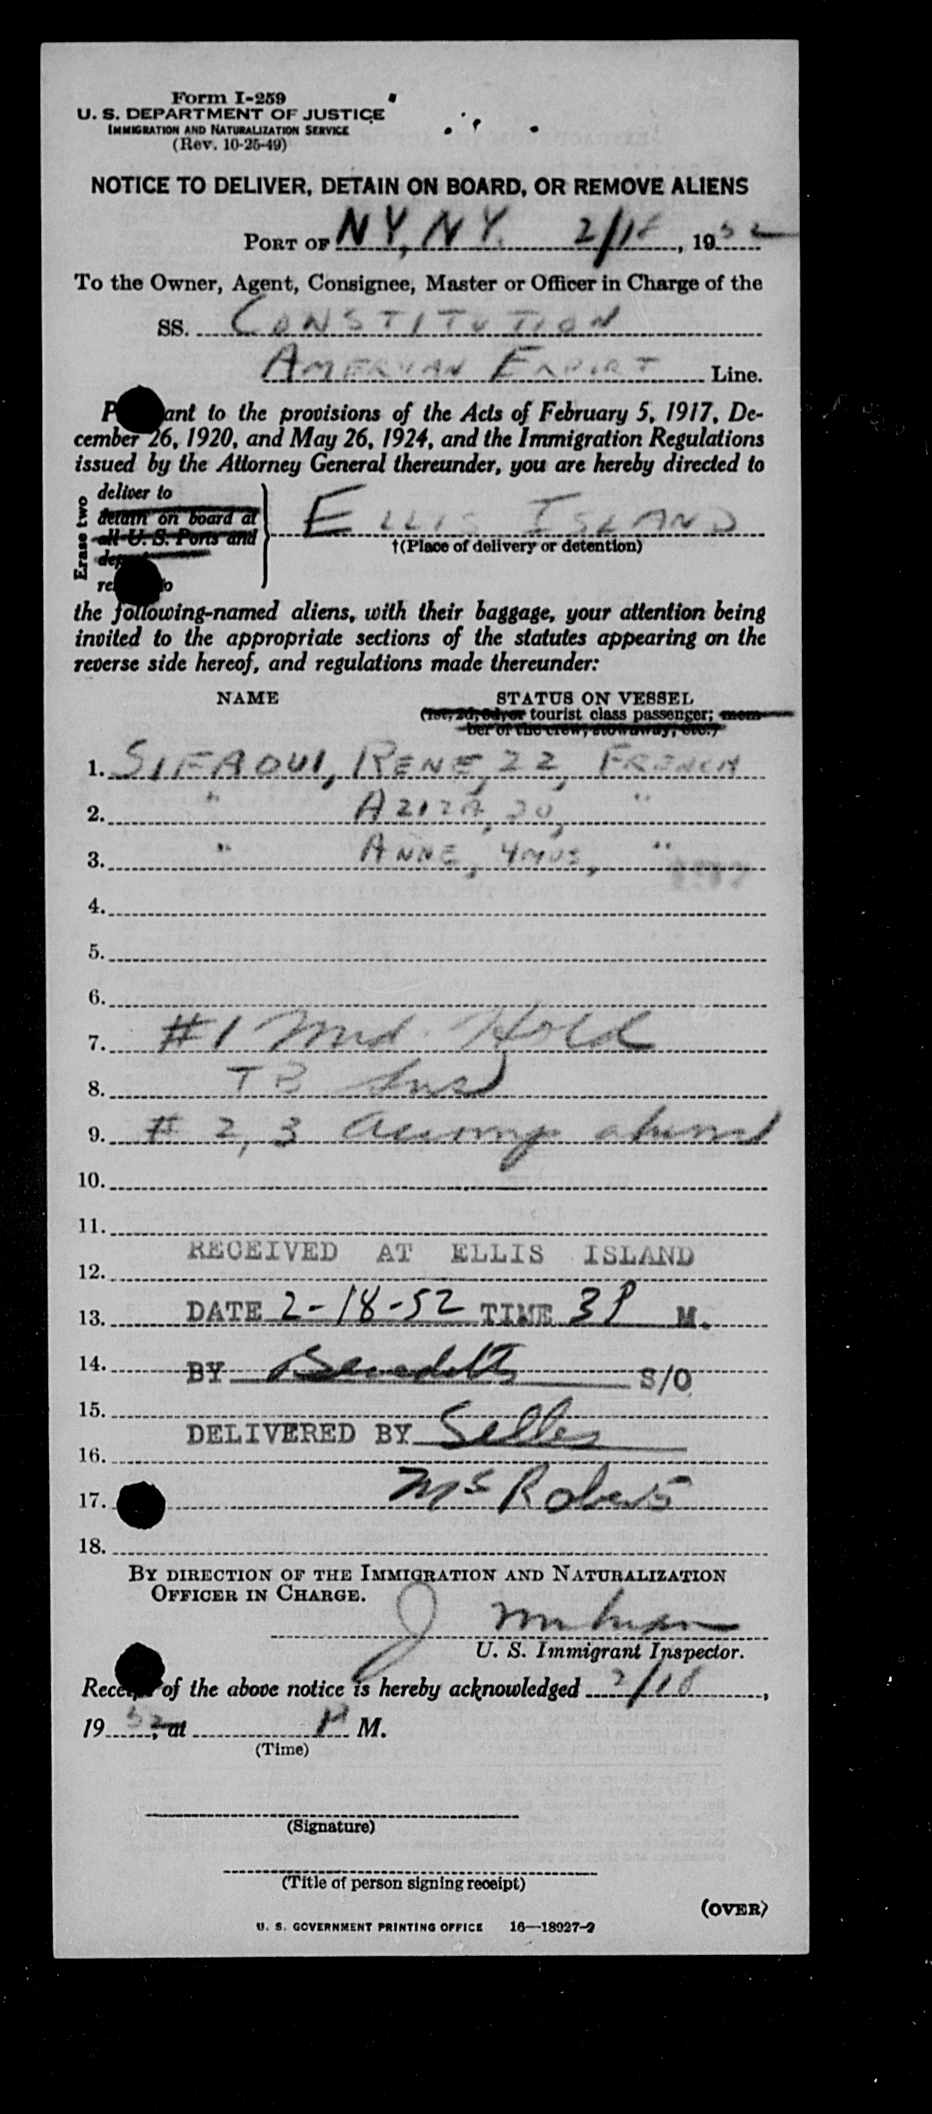 Form I-259
U. S. DEPARTMENT OF JUSTICE
IMMIGRATION AND NATURALIZATION SERVICE
(Rev. 10-25-49)
NOTICE TO DELIVER, DETAIN ON BOARD, OR REMOVE ALIENS
PORT OF NY, NY. 2/18, 1952
To the Owner, Agent, Consignee, Master or Officer in Charge of the
SS. CONSTITUTION
AMERICAN EXPORT Line.
P ant to the provisions of the Acts of February 5, 1917, De-
cember 26, 1920, and May 26, 1924, and the Immigration Regulations
issued by the Attorney General thereunder, you are hereby directed to
Erase two
deliver to
detain on board at
all U. S. Ports and
ELLIS ISLAND
†(Place of delivery or detention)
the following-named aliens, with their baggage, your attention being
invited to the appropriate sections of the statutes appearing on the
reverse side hereof, and regulations made thereunder:
NAME STATUS ON VESSEL
(1st, 2d, 3d, or tourist class passenger; mem-
ber of the crew, stowaway, etc.)
1. SIFAOUI, RENE, 22, FRENCH
2. " AZIZA, 20, "
3. " ANNE, 4MOS, "
4.
5.
6.
7. #1 Med. Hold
8. TB
9. # 2, 3 Accomp
10.
11.
RECEIVED AT ELLIS ISLAND
12.
13. DATE 2-18-52 TIME 3P M.
14. BY S/O
15.
DELIVERED BY
16.
17. Roberts
18.
BY DIRECTION OF THE IMMIGRATION AND NATURALIZATION
OFFICER IN CHARGE.
U. S. Immigrant Inspector.
Receipt of the above notice is hereby acknowledged 2/18,
1952, at M.
(Time)
(Signature)
(Title of person signing receipt)
(OVER)
U. S. GOVERNMENT PRINTING OFFICE 16—18927-2